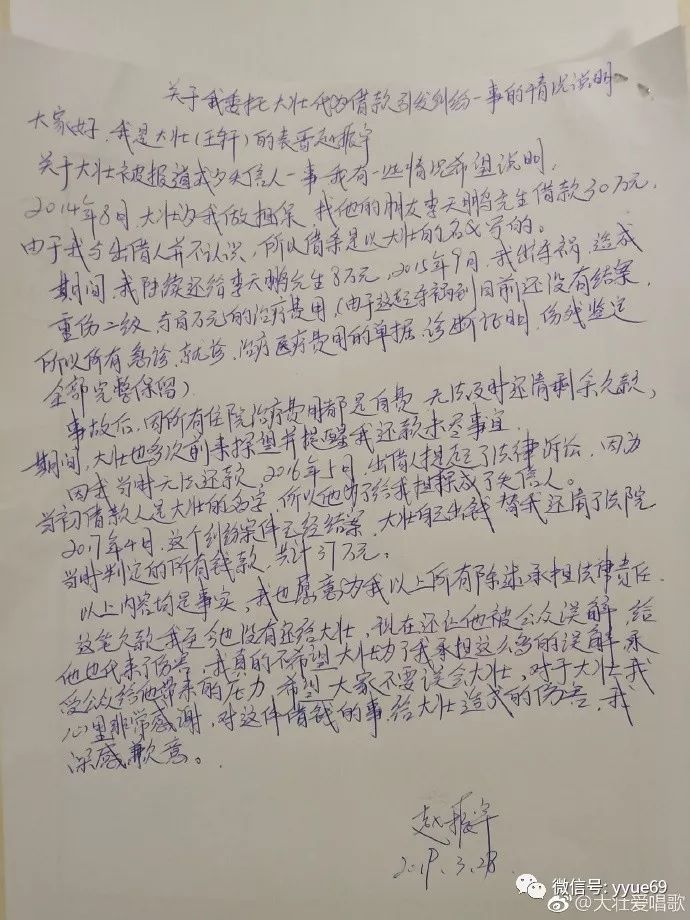 关于我委托大壮代为借款引发纠纷一事的情况说明
大家好,我是大壮(王轩)的表哥赵振宇
关于大壮被报道成为失信人一事我有一些情况希望说明。
2014年8月,大壮为我做担保,找他的朋友李天鹏先生借款30万元,
由于我与出借人并不认识,所以借条是以大壮的名义写的。
期间,我陆续还给李天鹏先生8万元,2015年9月,我出车祸,造成
重伤二级,与百万元的治疗费用(由于这起车祸到目前还没有结案,
所以所有急诊、就诊、治疗医疗费用的单据、诊断证明,伤残鉴定
全部完整保留)
事故后,因所有住院治疗费用都是自费,无法及时还清剩余欠款,
期间,大壮也多次前来探望并提醒我还款未尽事宜。
因我当时无法还款,2016年5月,出借人提起了法律诉讼,因为
当初借款人是大壮的名字,所以他为了给我担保成了失信人。
2017年4月,这个纠纷案件已经结案,大壮自己出钱替我还清了法院
当时判定的所有钱款,共计37万元。
以上内容均是事实,我也愿意为我以上所有陈述承担法律责任。
这笔欠款我至今也没有还给大壮,现在还让他被公众误解,给
他也带来了伤害,我真的不希望大壮为了我承担这么多的误解,承
受公众给他带来的压力,希望大家不要误会大壮,对于大壮我
心里非常感谢,对这件借钱的事,给大壮造成的伤害,我
深感歉意。
2019.3.28.
微信号: yyue69
@大壮爱唱歌